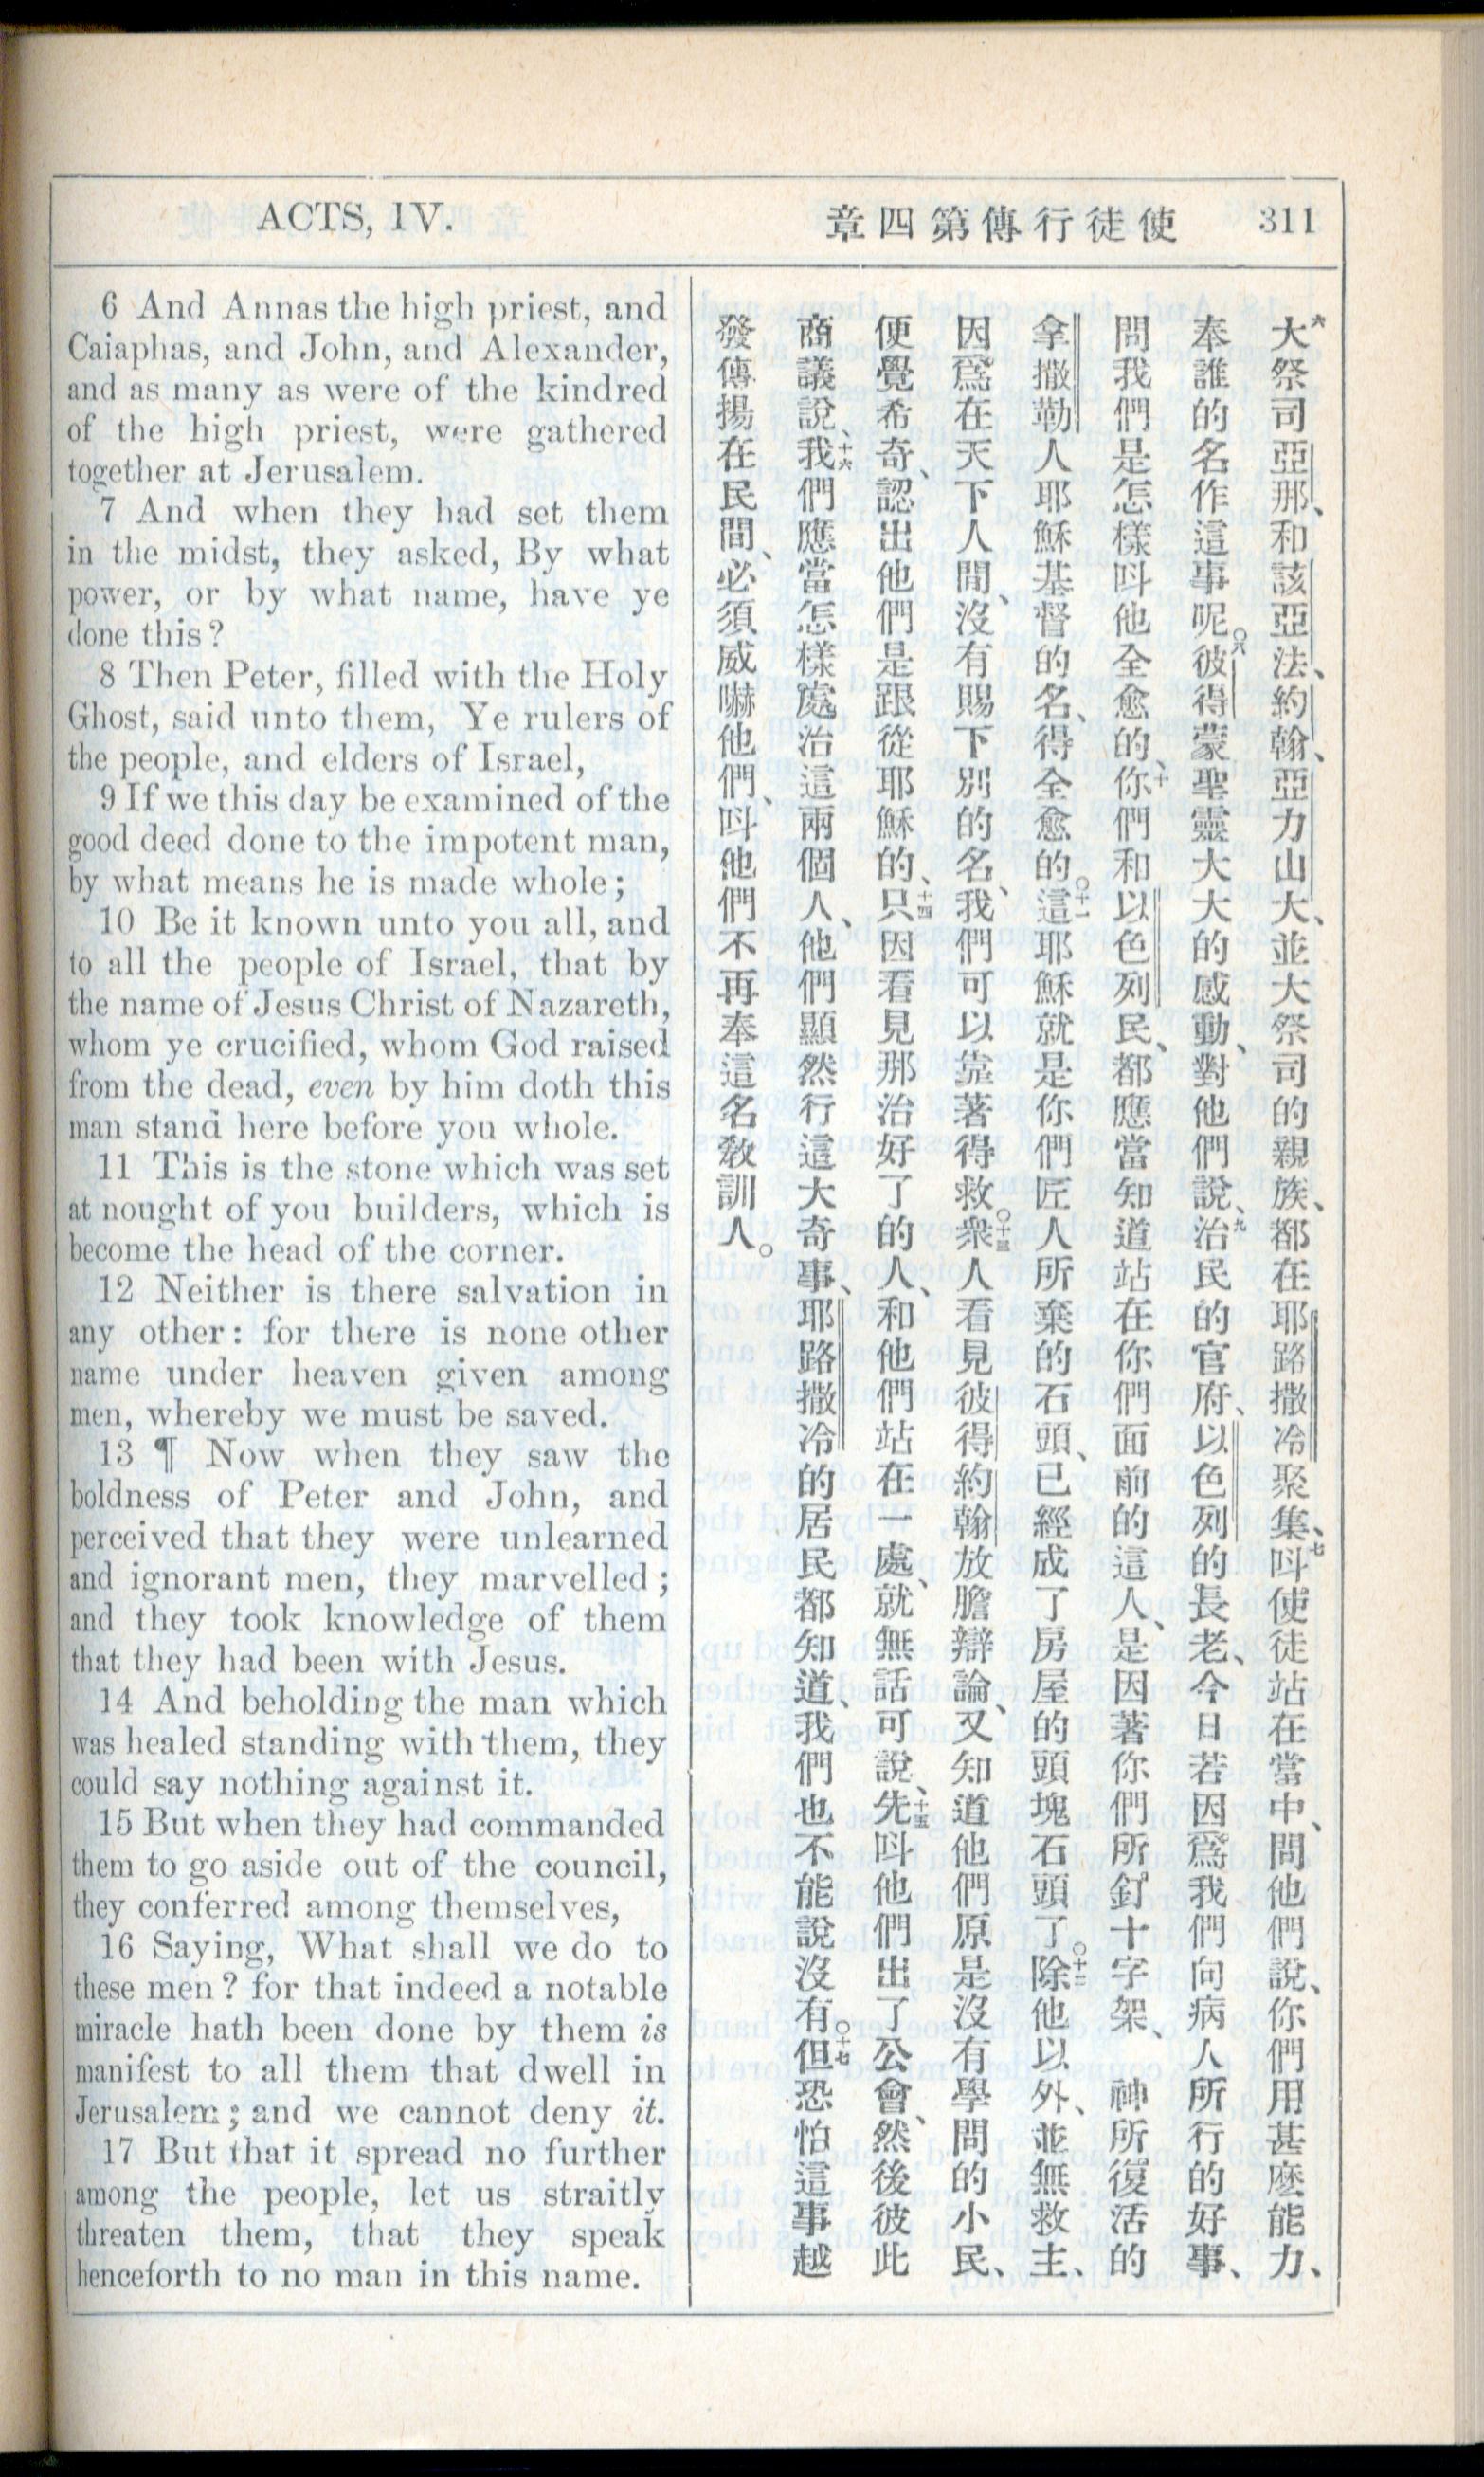 ACTS, IV.
使徒行傳第四章
311
6 And Annas the high priest, and
Caiaphas, and John, and Alexander,
and as many as were of the kindred
of the high priest, were gathered
together at Jerusalem.
7 And when they had set them
in the midst, they asked, By what
power, or by what name, have ye
done this?
8 Then Peter, filled with the Holy
Ghost, said unto them, Ye rulers of
the people, and elders of Israel,
9 If we this day be examined of the
good deed done to the impotent man,
by what means he is made whole;
10 Be it known unto you all, and
to all the people of Israel, that by
the name of Jesus Christ of Nazareth,
whom ye crucified, whom God raised
from the dead, even by him doth this
man stand here before you whole.
11 This is the stone which was set
at nought of you builders, which is
become the head of the corner.
12 Neither is there salvation in
any other: for there is none other
name under heaven given among
men, whereby we must be saved.
13 ¶ Now when they saw the
boldness of Peter and John, and
perceived that they were unlearned
and ignorant men, they marvelled;
and they took knowledge of them
that they had been with Jesus.
14 And beholding the man which
was healed standing with them, they
could say nothing against it.
15 But when they had commanded
them to go aside out of the council,
they conferred among themselves,
16 Saying, What shall we do to
these men? for that indeed a notable
miracle hath been done by them is
manifest to all them that dwell in
Jerusalem; and we cannot deny it.
17 But that it spread no further
among the people, let us straitly
threaten them, that they speak
henceforth to no man in this name.
六大祭司亞那、和該亞法、約翰、亞力山大、並大祭司的親族、都在耶路撒冷聚集、七呌使徒站在當中、問他們說、你們用甚麽能力、
奉誰的名作這事呢。八彼得蒙聖靈大大的感動、對他們說、九治民的官府、以色列的長老、今日若因爲我們向病人所行的好事、
問我們是怎樣呌他全愈的十你們和以色列民、都應當知道站在你們面前的這人、是因著你們所釘十字架、神所復活的
拿撒勒人耶穌基督的名、得全愈的。十一這耶穌就是你們匠人所棄的石頭、已經成了房屋的頭塊石頭了。十二除他以外、並無救主、
因爲在天下人間、沒有賜下別的名、我們可以靠著得救。十三衆人看見彼得約翰放膽辯論、又知道他們原是沒有學問的小民、
便覺希奇、認出他們是跟從耶穌的、十四只因看見那治好了的人、和他們站在一處、就無話可說、十五先呌他們出了公會、然後彼此
商議說、十六我們應當怎樣處治這兩個人、他們顯然行這大奇事、耶路撒冷的居民都知道、我們也不能說沒有。十七但恐怕這事越
發傳揚在民間、必須威嚇他們、呌他們不再奉這名敎訓人。